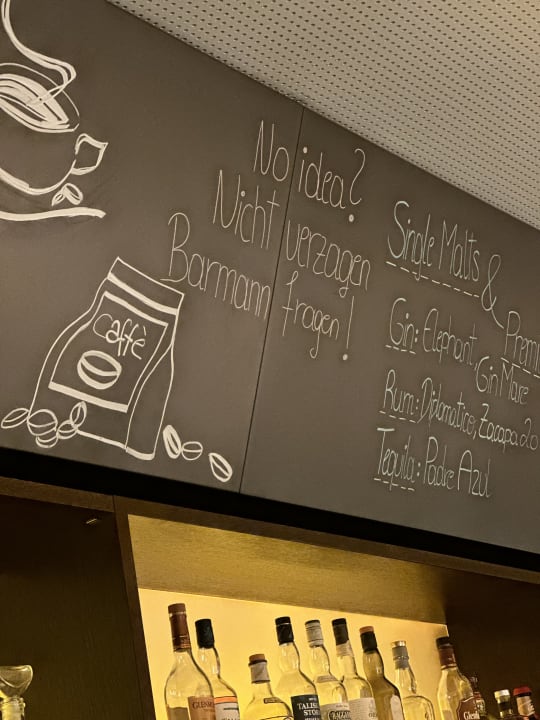 No idea?
Nicht verzagen
Barmann fragen!
Caffè
Single Malts
&
Gin: Elephant,
Gin Mare
Rum: Diplomatico, Zacapa
Tequila: Padre Azul
TALIS
STO